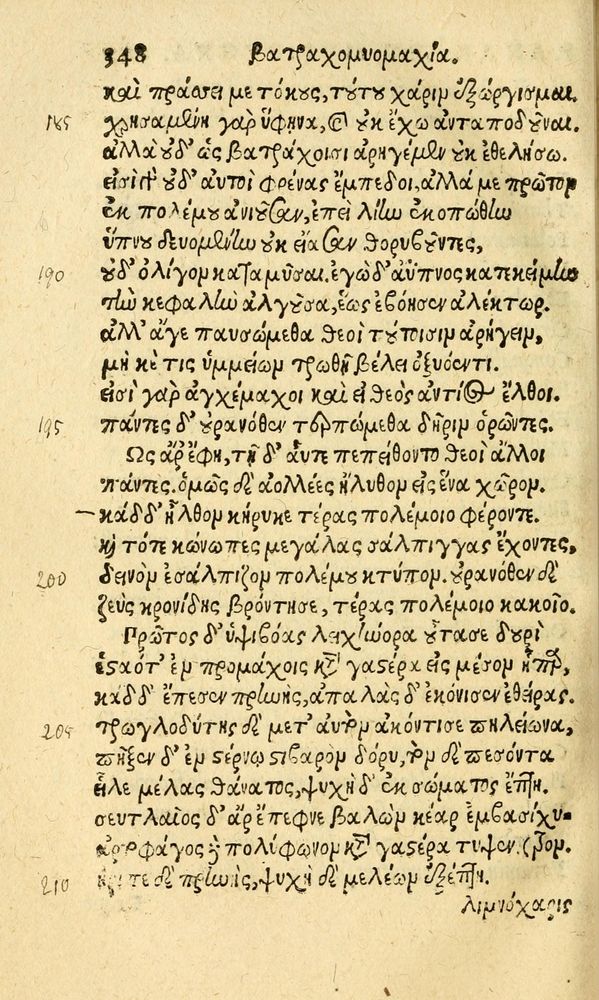 348 βατραχομυομαχία.
καὶ πράσσει με τόκους, τούτου χάριν ἐξώργισμαι.
185 χρησαμένη γὰρ ὕφηνα, καὶ οὐκ ἔχω ἀνταποδοῦναι.
ἀλλὰ οὐδ' ὣς βατράχοισι ἀρηγέμεν οὐκ ἐθελήσω.
εἰσὶ γὰρ οὐδ' αὐτοὶ φρένας ἔμπεδοι, ἀλλά με πρῶτον
ἐκ πολέμου ἀνιοῦσαν, ἐπεὶ λίην ἐκοπώθην
ὕπνου δευομένην οὐκ εἴασαν θορυβοῦντες,
190 οὐδ' ὀλίγον καταμῦσαι. ἐγὼ δ' ἄϋπνος κατεκείμην
τὴν κεφαλὴν ἀλγοῦσα, ἕως ἐβόησεν ἀλέκτωρ.
ἀλλ' ἄγε παυσώμεθα θεοὶ τούτοισιν ἀρήγειν,
μή κέ τις ὑμμείων τρωθῇ βέλει ὀξυόεντι.
εἰσὶ γὰρ ἀγχέμαχοι καὶ εἰ θεὸς ἀντίος ἔλθοι.
195 πάντες δ' οὐρανόθεν τερπώμεθα δῆριν ὁρῶντες.
Ὣς ἄρ' ἔφη, τῇ δ' αὖτε πεπείθοντο θεοὶ ἄλλοι
πάντες. ὁμῶς δὲ ἀολλέες ἤλυθον εἰς ἕνα χῶρον.
κὰδ δ' ἦλθον κήρυκε τέρας πολέμοιο φέροντε.
καὶ τότε κώνωπες μεγάλας σάλπιγγας ἔχοντες,
200 δεινὸν ἐσάλπιζον πολέμου κτύπον. οὐρανόθεν δὲ
ζεὺς κρονίδης βρόντησε, τέρας πολέμοιο κακοῖο.
Πρῶτος δ' ὑψιβόας λειχήνορα οὔτασε δουρὶ
ἑσταότ' ἐν προμάχοις κατὰ γαστέρα εἰς μέσον ἧπαρ,
κὰδ δ' ἔπεσεν πρηνής, ἁπαλὰς δ' ἐκόνισεν ἐθείρας.
205 τρωγλοδύτης δὲ μετ' αὐτὸν ἀκόντισε πηλείωνα,
πῆξεν δ' ἐν στέρνῳ στιβαρὸν δόρυ, τὸν δὲ πεσόντα
εἷλε μέλας θάνατος, ψυχὴ δ' ἐκ σώματος ἔπτη.
σευτλαῖος δ' ἄρ' ἔπεφνε βαλὼν κέαρ ἐμβασίχυ-
ἀρτοφάγος δὲ πολύφωνον κατὰ γαστέρα τύψεν. (τρον.
210 ἤριπε δὲ πρηνής, ψυχὴ δὲ μελέων ἐξέπτη.
λιμνόχαρις